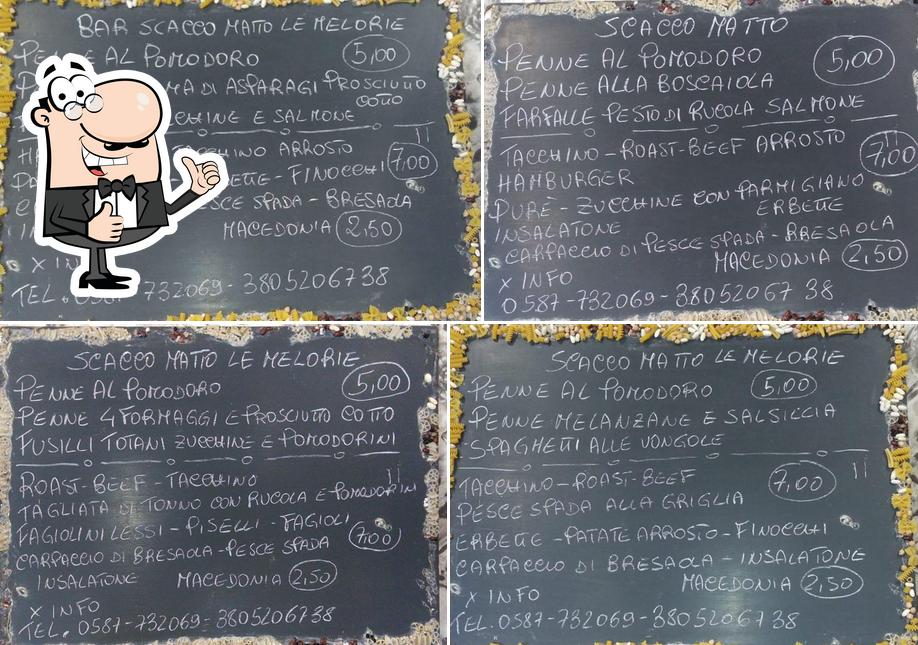 BAR SCACCO MATTO LE MELORIE
PENNE AL POMODORO 5,00
MA DI ASPARAGI PROSCIUTTO
COTTO
CHINE E SALMONE
CCHINO ARROSTO
ETTE - FINOCCHI 7,00
SCE SPADA - BRESAOLA
MACEDONIA 2,50
X IN
TEL. 0587-732069-3805206738
SCACCO MATTO
PENNE AL POMODORO 5,00
PENNE ALLA BOSCAIOLA
FARFALLE PESTO DI RUCOLA SALMONE
TACCHINO - ROAST-BEEF ARROSTO
HAMBURGER 7,00
PURÈ - ZUCCHINE CON PARMIGIANO
ERBETTE
INSALATONE
CARPACCIO DI PESCE SPADA - BRESAOLA
MACEDONIA 2,50
X INFO
0587-732069-3805206738
SCACCO MATTO LE MELORIE
PENNE AL POMODORO 5,00
PENNE 4 FORMAGGI E PROSCIUTTO COTTO
FUSILLI TOTANI ZUCCHINE E POMODORINI
ROAST-BEEF - TACCHINO
TAGLIATA DI TONNO CON RUCOLA E POMODORINI
FAGIOLINI LESSI - PISELLI - FAGIOLI
CARPACCIO DI BRESAOLA - PESCE SPADA 7,00
INSALATONE MACEDONIA 2,50
X INFO
TEL. 0587-732069-3805206738
SCACCO MATTO LE MELORIE
PENNE AL POMODORO 5,00
PENNE MELANZANE E SALSICCIA
SPAGHETTI ALLE VONGOLE
TACCHINO - ROAST-BEEF 7,00
PESCE SPADA ALLA GRIGLIA
ERBETTE - PATATE ARROSTO - FINOCCHI
CARPACCIO DI BRESAOLA - INSALATONE
MACEDONIA 2,50
X INFO
TEL. 0587-732069-3805206738